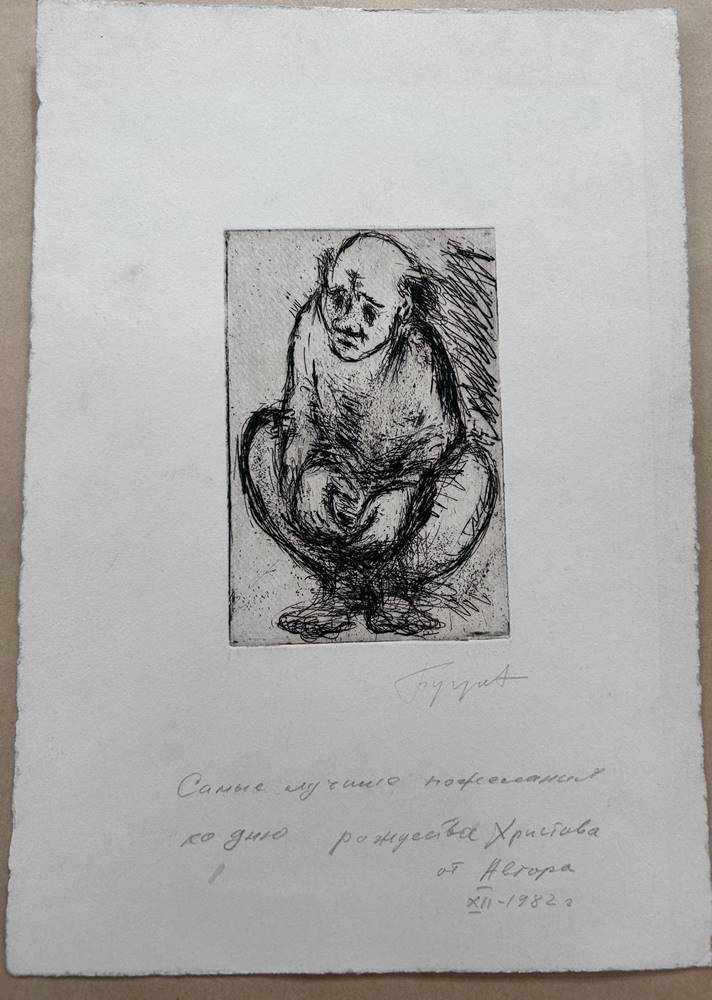 Самые лучшие пожелания
ко дню рожуства Христова
от Автора
XII-1982 г